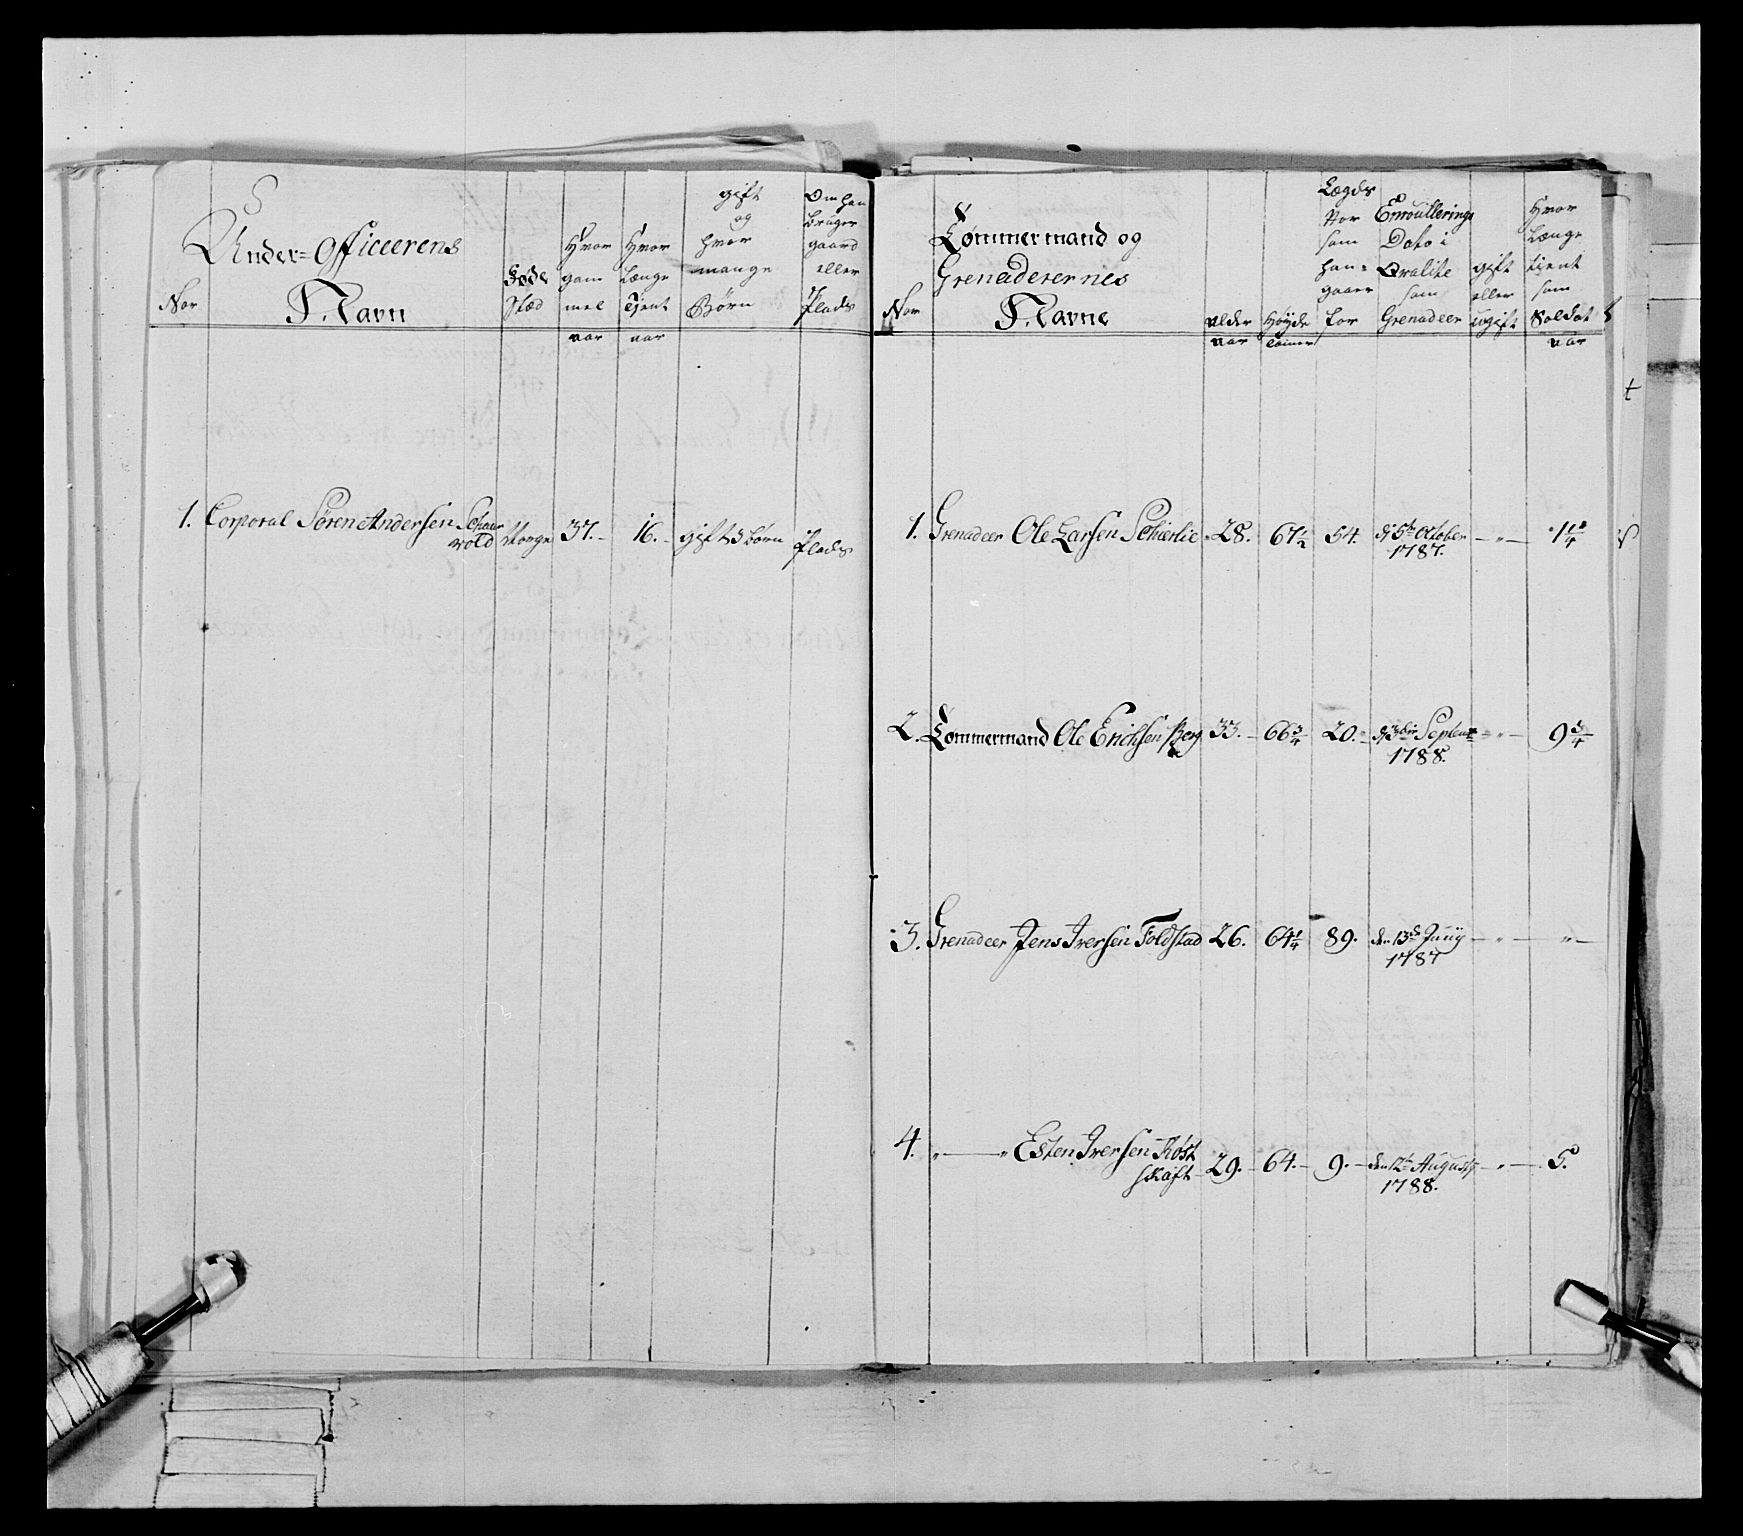 Under=Officeerens
Nor
Navn
Føde
Stæd
Hvor
gam
mel
aar
Hvor
Længe
Tjent
aar
gift
og
hvor
mange
Børn
Om han
bruger
gaard
eller
Plads
1. Corporal Søren Andersen Schau
vold Norge 37.- 16.- gift 3 børn Plads
Nor
Tømmermand og
Grenaderernes
Navne
alder
aar
Høyde
Tommer
Lægds
Nor
som
han
gaaer
for
Enroullerings
Dato i
Qvalite
som
Grenadeer
gift
eller
ugift
Hvor
Længe
tjent
som
Soldat
aar
1. Grenadeer Ole Larsen 28. 67½ 54. d: 5te October - " - 1¼
1787.
2. Tømmermand Ole Erichsen Berg 33.- 66¾ 20.- Septem - " - 9¾
1788.
3. Grenadeer Jens Iversen Foldstad 26. 64¼ 89. den 13de Juny - " - " -
1787
4. " — " Esten Iversen Røst
skaft 29.- 64.- 9.- den 12te Augusty - " - 5.
1788.